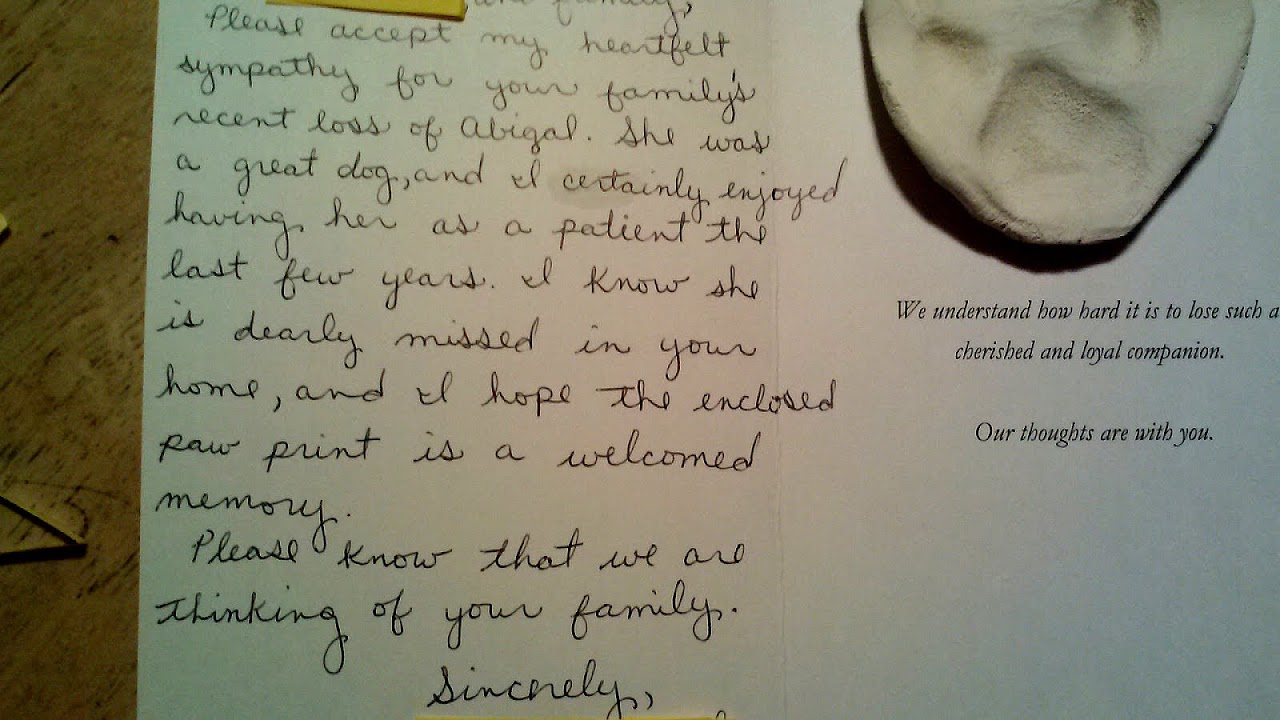 and family,
Please accept my heartfelt
sympathy for your family's
recent loss of Abigal. She was
a great dog, and I certainly enjoyed
having her as a patient the
last few years. I know she
is dearly missed in your
home, and I hope the enclosed
paw print is a welcomed
memory.
Please know that we are
thinking of your family.
Sincerely,
We understand how hard it is to lose such a
cherished and loyal companion.
Our thoughts are with you.